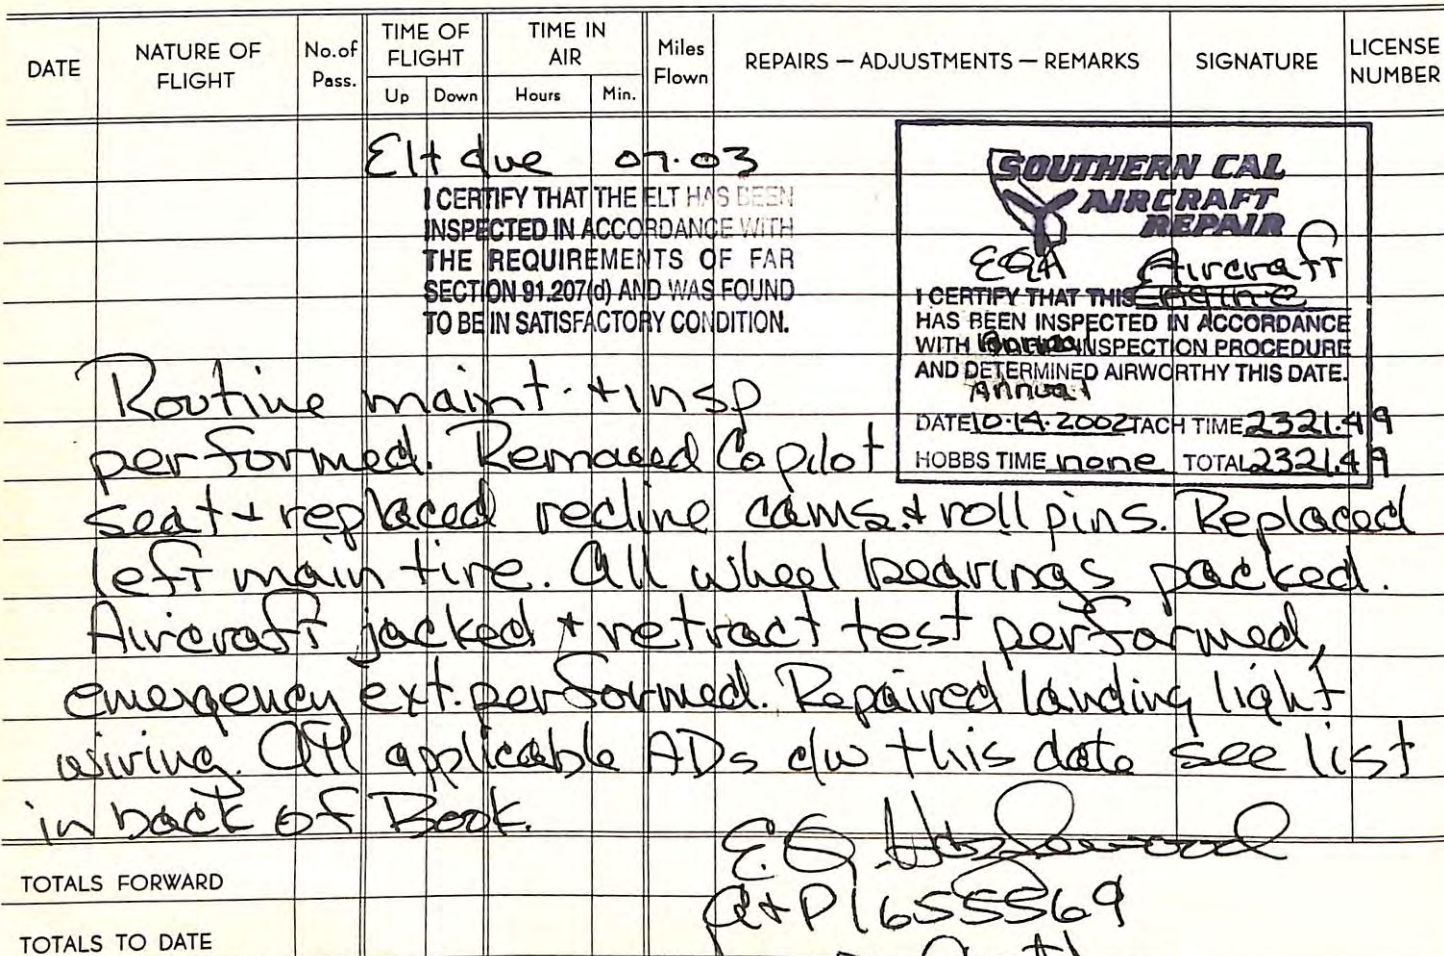 DATE
NATURE OF FLIGHT
No.of Pass.
TIME OF FLIGHT
Up Down
TIME IN AIR
Hours Min.
Miles Flown
REPAIRS — ADJUSTMENTS — REMARKS
SIGNATURE
LICENSE NUMBER
Elt due 07.03
I CERTIFY THAT THE ELT HAS BEEN
INSPECTED IN ACCORDANCE WITH
THE REQUIREMENTS OF FAR
SECTION 91.207(d) AND WAS FOUND
TO BE IN SATISFACTORY CONDITION.
SOUTHERN CAL
AIRCRAFT
REPAIR
EGH Aircraft
I CERTIFY THAT THIS Engine
HAS BEEN INSPECTED IN ACCORDANCE
WITH INSPECTION PROCEDURE
AND DETERMINED AIRWORTHY THIS DATE.
Annual
DATE 10.14.2002 TACH TIME 2321.49
HOBBS TIME none TOTAL 2321.49
Routine maint. + insp
performed. Removed Copilot
seat + replaced recline cams + roll pins. Replaced
left main tire. All wheel bearings packed.
Aircraft jacked + retract test performed,
emergency ext. performed. Repaired landing light
wiring. All applicable ADs c/w this date see list
in back of Book.
E.G. Hazlewood
A+P 1655569
TOTALS FORWARD
TOTALS TO DATE